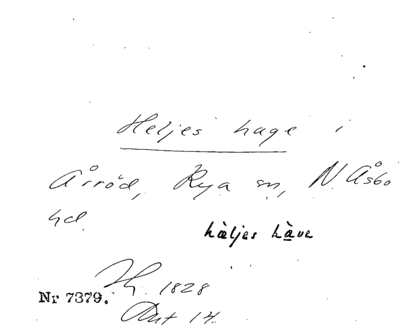 Heljes hage i
Årröd, Rya sn, N. Åsbo
hd.
hàljes hàve
1828
Nr 7379.
14.